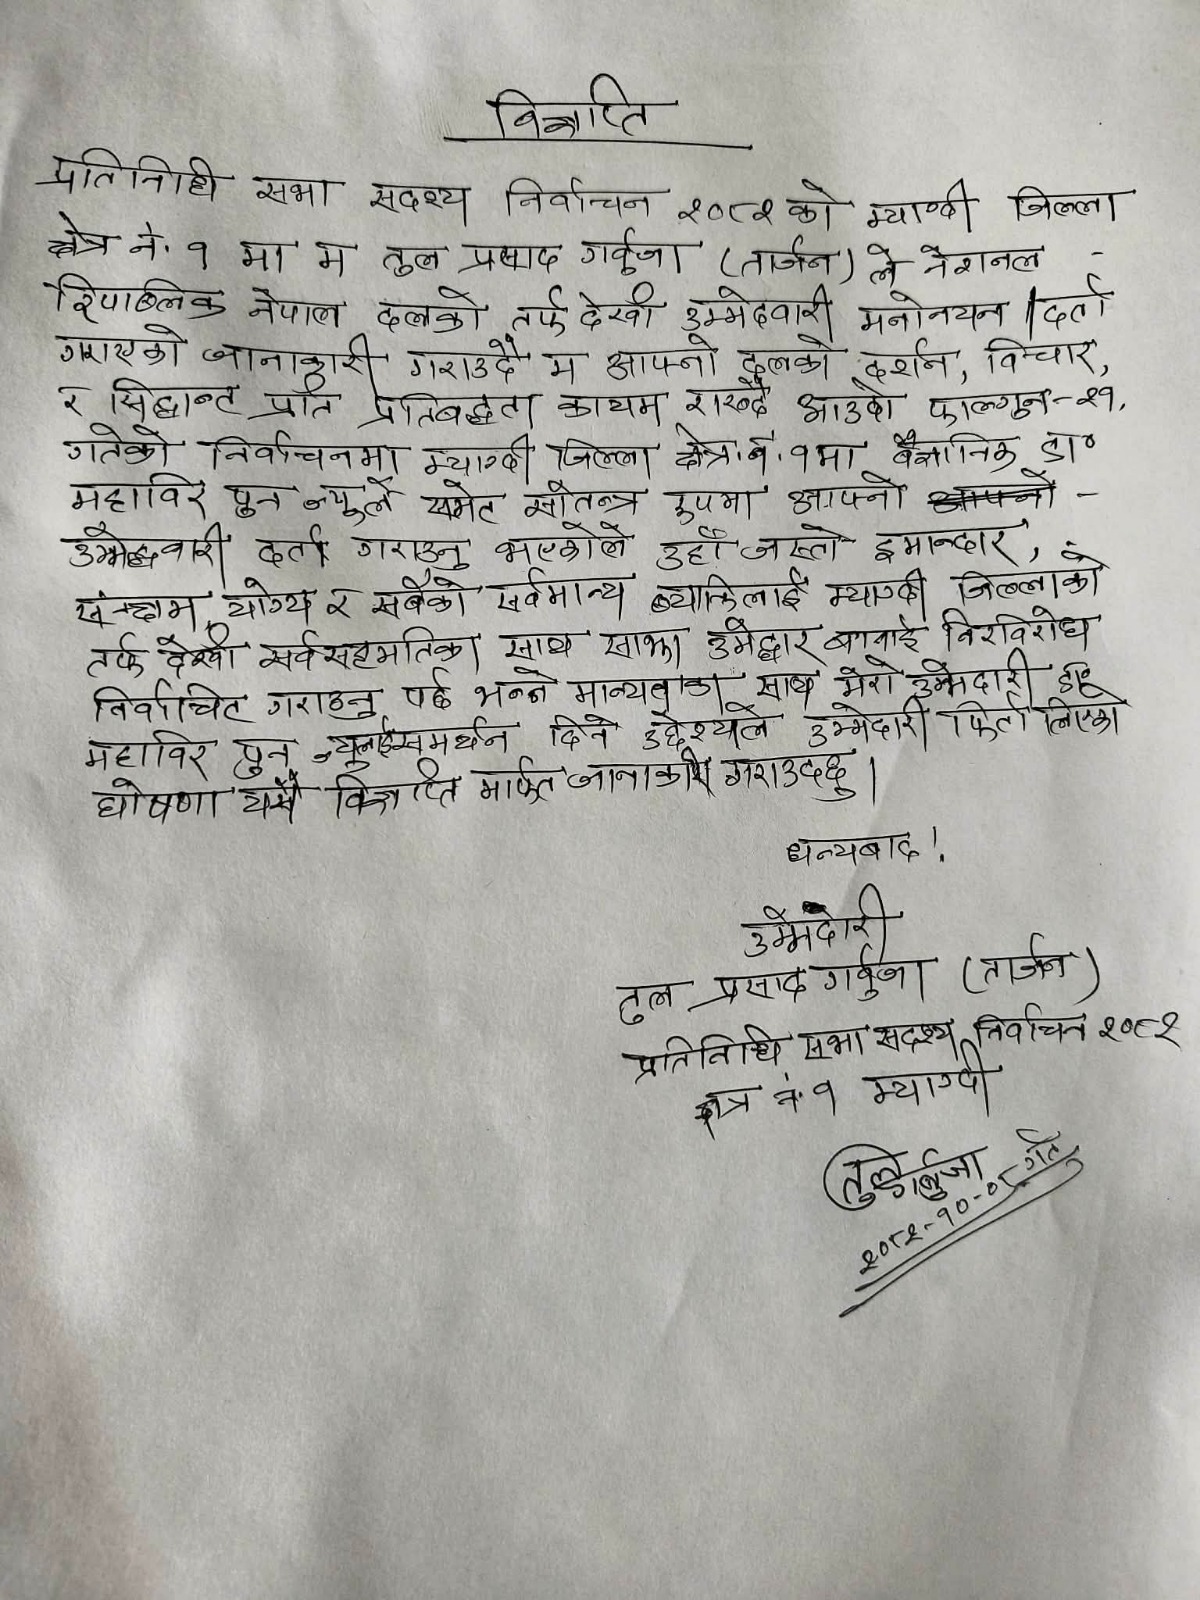 विज्ञप्ति
प्रतिनिधी सभा सदश्य निर्वाचन २०८२ को म्याग्दी जिल्ला
क्षेत्र नं. १ मा म तुल प्रसाद गर्वुजा (तार्जन) ले नेशनल -
रिपाब्लिक नेपाल दलको तर्फ देखी उम्मेदवारी मनोनयन / दर्ता
गराएको जानाकारी गराउदै म आफ्नो दलको दर्शन, विचार,
र सिद्धान्त प्रति प्रतिबद्धता कायम राख्दै आउदो फाल्गुन-२१,
गतेको निर्वाचनमा म्याग्दी जिल्ला क्षेत्र.नं. १मा बैज्ञानिक डा०
महाविर पुन ज्यूले समेत सोतन्त्र रुपमा आफ्नो आफ्नो -
उम्मेद्धवारी दर्ता गराउनु भएकोले उहाँ जस्तो इमान्दार,
सन्क्षम, योग्य र सबैको सर्वमान्य ब्याक्तिलाई म्याग्दी जिल्लाको
तर्फ देखी सर्वसहमतिका साथ साझा उमेद्धार बनाई निरविरोध
निर्वाचित गराउनु पर्छ भन्ने मान्यताका साथ मेरो उम्मेदारी डा०
महाविर पुन ज्यूलाई समर्थन दिने उद्देश्यले उम्मेदारी फिर्ता लिएको
घोषणा यसै विज्ञप्ति मार्फत जानाकारी गराउदछु।
धन्यबाद !
उम्मेदोरी
तुल प्रसाद गर्वुजा (तार्जन)
प्रतिनिधि सभा सदश्य निर्वाचन २०८२
क्षेत्र नं. १ म्याग्दी
तुल गर्बुजा
२०८२-१०-०८ गते